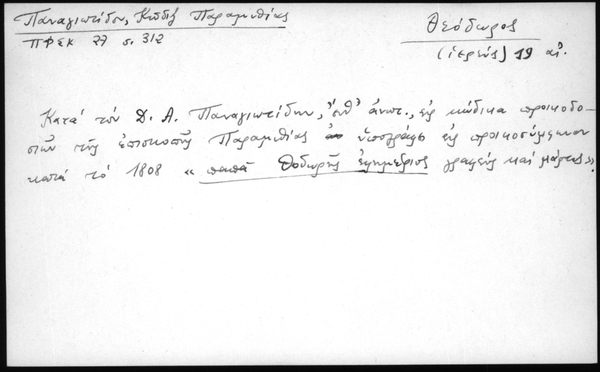 Παναγιωτίδου, Κώδιξ Παραμυθίας
ΠΦΕΚ 77 σ. 312
Θεόδωρος
(ἱερεύς) 19 αἰ.
Κατά τόν Δ. Α. Παναγιωτίδην, ἔνθ' ἀνωτ., εἰς κώδικα προικοδο-
σιῶν τῆς ἐπισκοπῆς Παραμυθίας ὑπογράφει εἰς προικοσύμφωνον
κατά τό 1808 « παπᾶ Θοδωρῆς ἐφημέριος γραφεύς καί μάρτυς».